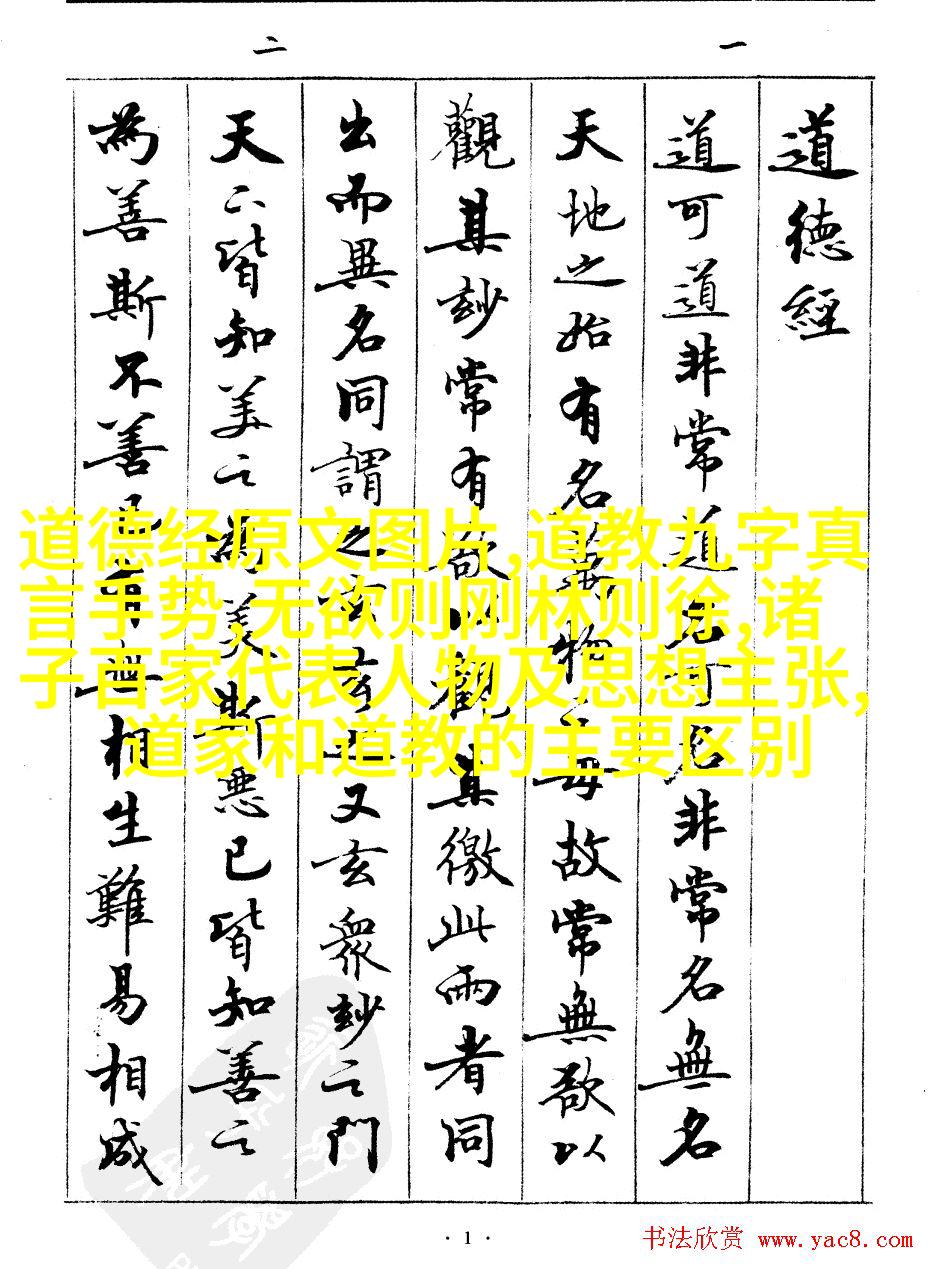 一
二
道德經
道可道非常道名可名非常名無名
天地之始有名萬物之母故常無欲以
觀其玅常有欲以觀其徼此兩者同
出而異名同謂之玄玄之又玄衆玅之門
天下皆知美之為美斯惡已皆知善之
為善斯不善已有無相生難易相成
道德经原文图片,道教九字真
言手势,无欲则刚林则徐,诸
子百家代表人物及思想主张,
道家和道教的主要区别
· 1 ·
书法欣赏 www.yac8.com